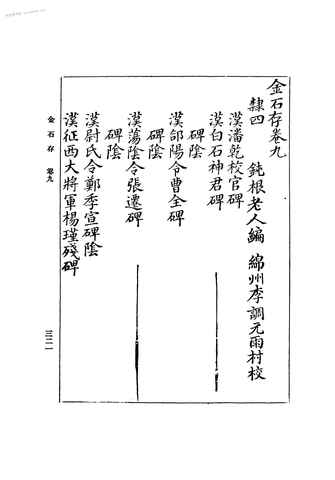 金石存卷九
隸四 鈍根老人編 綿州李調元雨村校
漢潘乾校官碑
漢白石神君碑
碑陰
漢郃陽令曹全碑
碑陰
漢蕩陰令張遷碑
碑陰
漢尉氏令鄭季宣碑陰
漢征西大將軍楊瑾殘碑
金石存 卷九
三二一